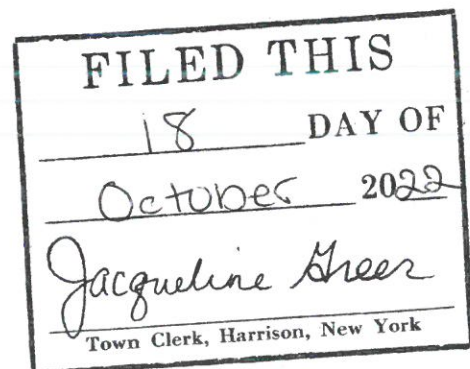 FILED THIS
18 DAY OF
October 2022
Jacqueline Greer
Town Clerk, Harrison, New York